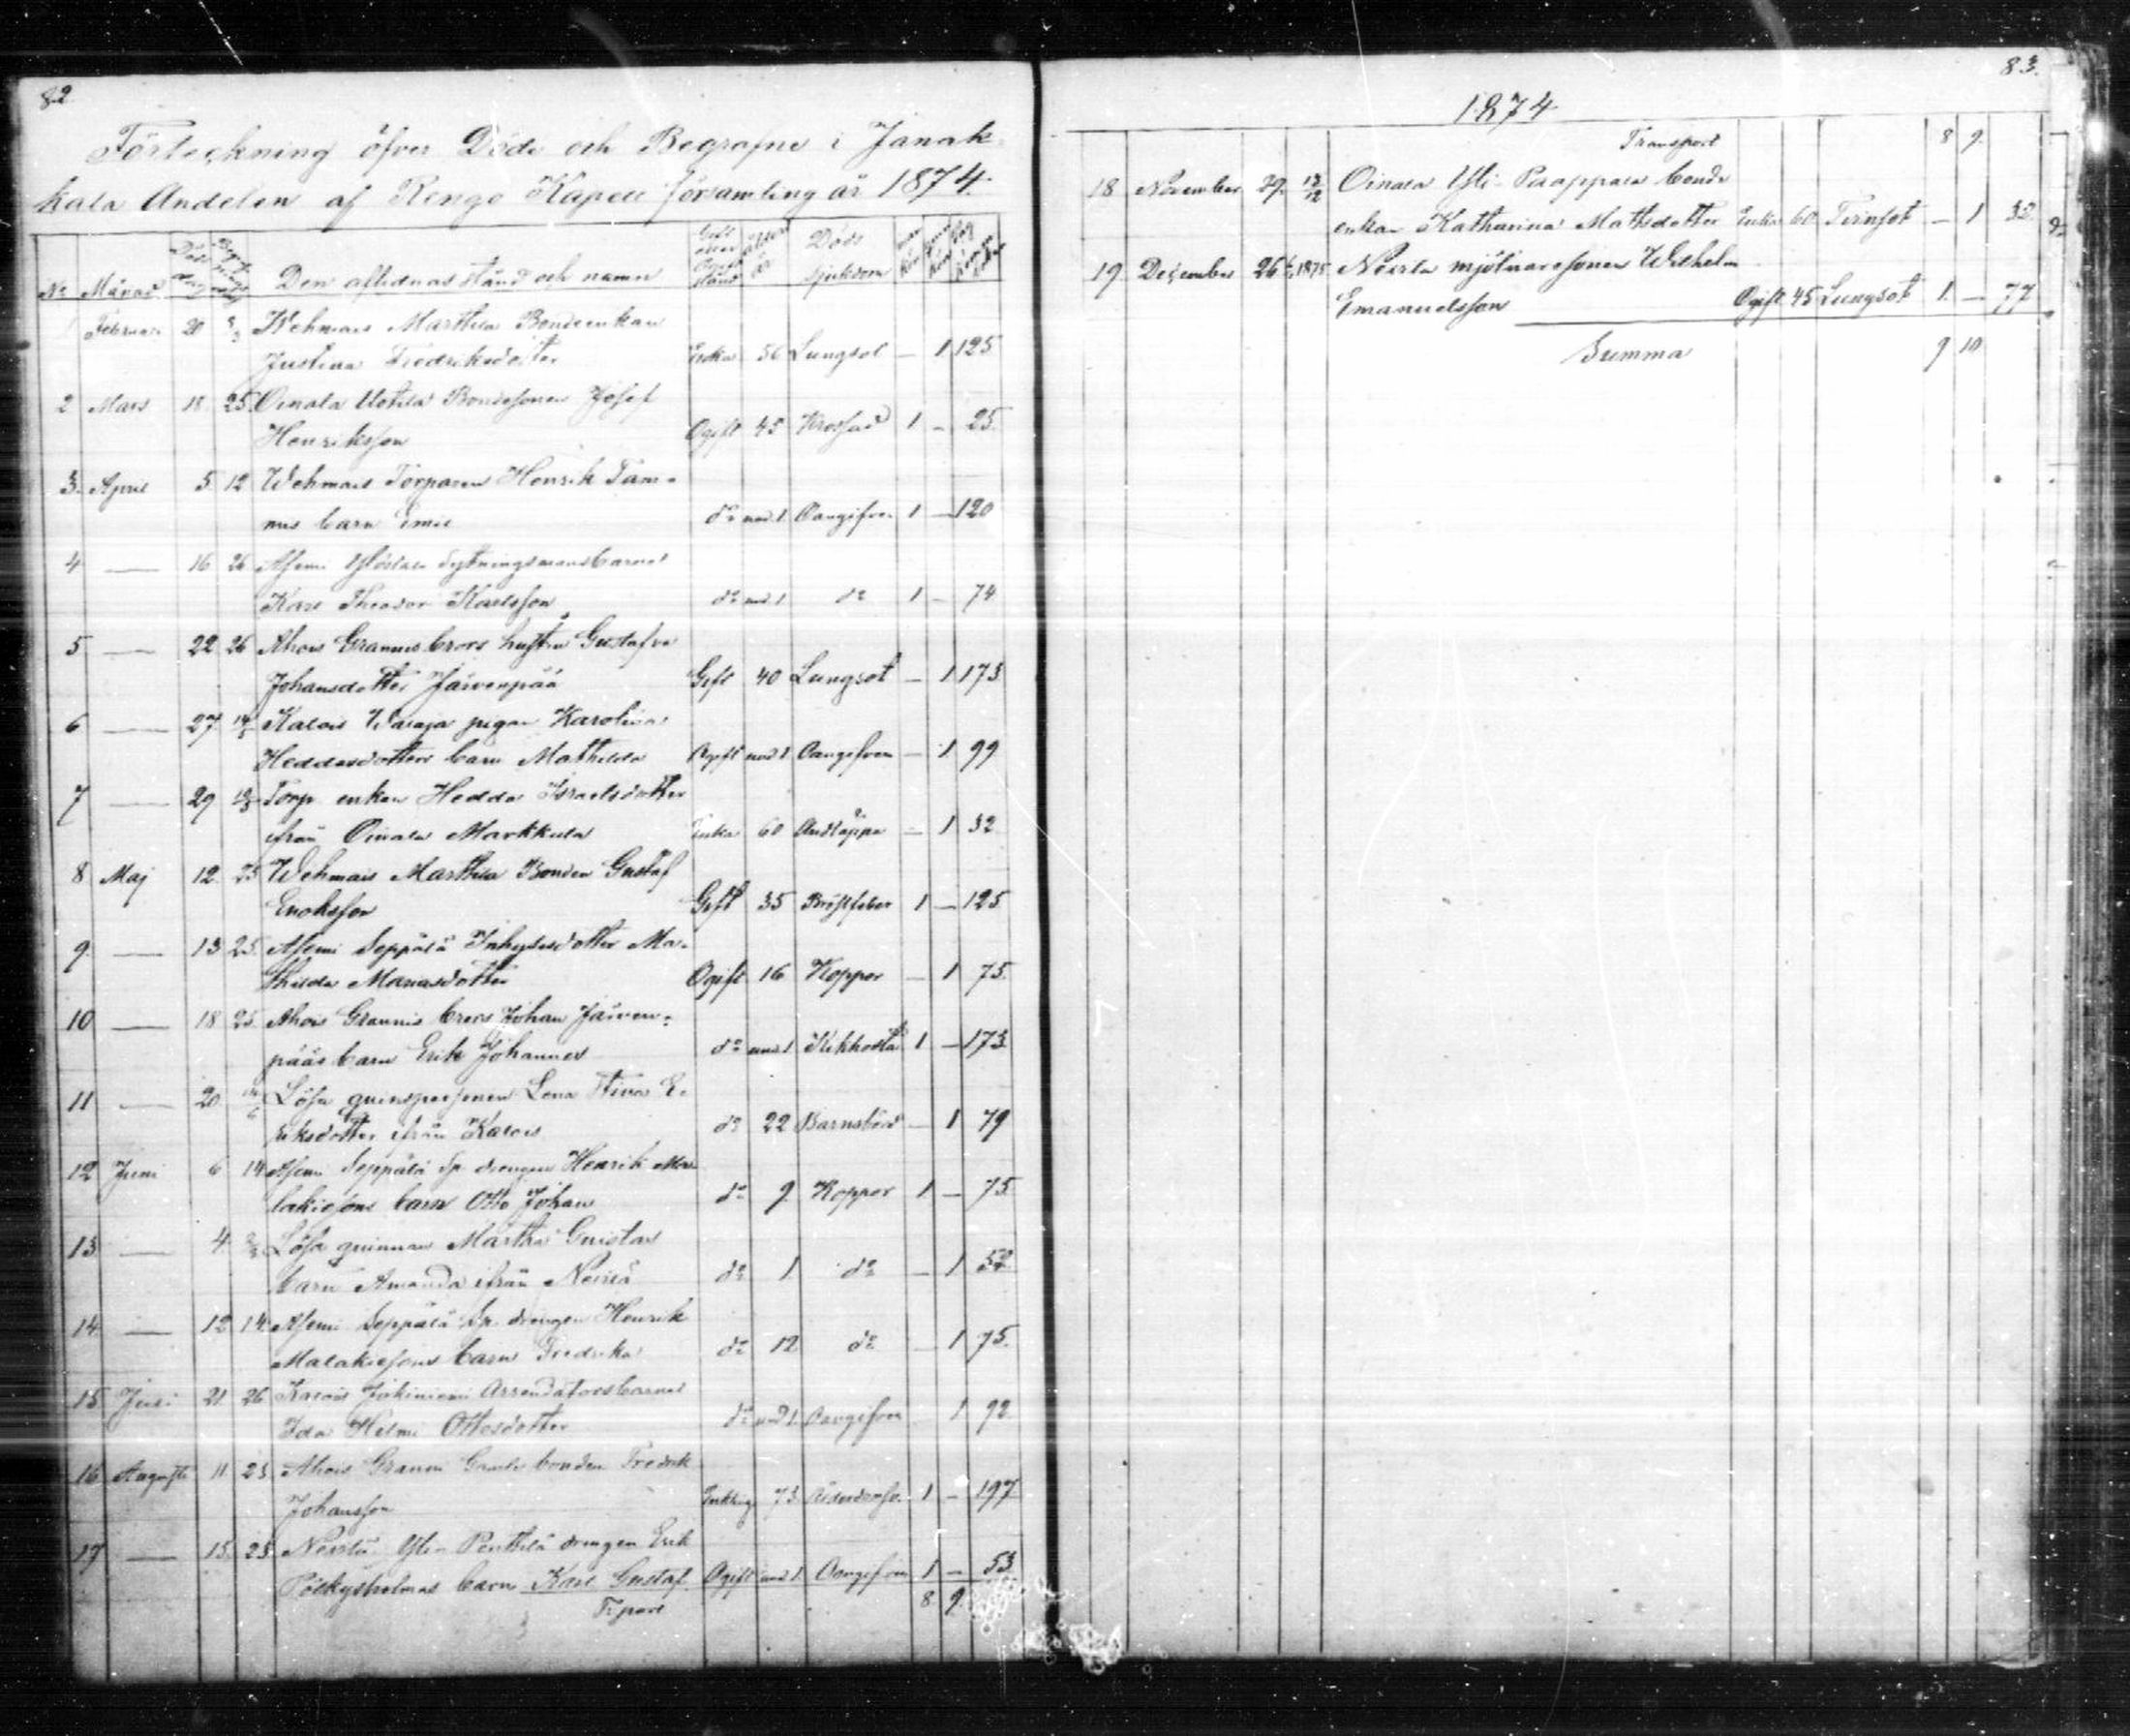 82
Förteckning öfver Döde och Begrafne i Janak-
kala Andelen af Rengo Kapell församling år 1874.
No Månad Död dag Den aflidnas stånd och namn Döds sjukdom
1 Februari 20 Wehmais Marttila Bondeenkan
Justina Fredriksdotter Enka 56 Lungsot — 1 125
2 Mars 18 25 Oinala Uotila Bondesonen Josef
Henriksson Ogift 45 1 — 25.
3. April 5 12 Wehmais Torparen Henrik Tam-
mis barn Emil do und. 1 Oangifven 1 — 120
4 — 16 26 Asemi Sytningsmansbarnet
Karl Theodor Karlsson do und. 1 do 1 — 74
5 — 22 26 Ahois Grannis brors hustru Gustafva
Johansdotter Järvenpää Gift 40 Lungsot — 1 173
6 — 27 Kalois pigan Karolina
Heddasdotters barn Mathilda Ogift und 1 Oangifven — 1 99
7 — 29 Torp. enkan Hedda Israelsdotter
ifrån Oinala Markkula Enka 60 Andtäppa — 1 32
8 Maj 12. 25 Wehmais Marttila Bonden Gustaf
Enoksson Gift 35 Bröstfeber 1 — 125
9. — 13 25. Asemi Seppälä Inhysesdotter Ma-
thilda Mariasdotter Ogift 16 Koppor — 1 75.
10 — 18 25. Ahois Grannis brors Johan Järven-
pääs barn Erik Johannes do und. 1 Kikhosta 1 — 173
11 — 20 Lösa qvinspersonen Lena Stiva E-
riksdotter ifrån Kalois do 22 Barnsbörd — 1 79
12 Juni 6 14 Asemi Seppälä Sp. drengen Henrik Ma-
lakiesons barn Otto Johan do 9. Koppor 1 — 75.
13 — 4 Lösa qvinnan Martha Gustas
barn Amanda ifrån Nevilä do 1 do — 1 52
14 — 12 14 Asemi Seppälä Sp. drengen Henrik
Malakiesons barn Fredrika do 12 do — 1 75.
15 Juli 21 26 Kalois Jokiniemi Arrendatorsbarnet
Ida Hilma Ottosdotter do und 1. Oangifven 1 92
16 Augusti 11 23 Ahois Granni Gamle bonden Fredrik
Johansson Enkling 73. 1 — 197
17 — 15. 23 Nevilä Yli-Penttilä drengen Erik
barn Karl Gustaf. Ogift und 1. Oangifven 1 — 53
Tr.port 8 9.
83.
1874
Transport 8 9.
18 November 29. 13/12 Oinala Yli-Paappala bonde
enkan Katharina Mattsdotter Enka 60 Tvinsot — 1 32.
19. December 26 1875 Nevilä mjölnaresonen Wilhelm
Emanuelsson Ogift 45 Lungsot 1. — 77
Summa 9 10